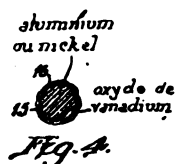 aluminium
ou nickel
16
oxyde de
15 vanadium
Fig. 4.